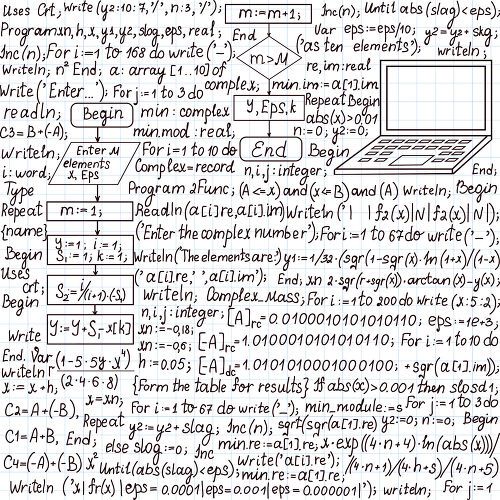 Uses Crt; write(y2:10:7,'/', n:3, '/'); m:=m+1; Inc(n); Until abs(slag)<eps);
Program xn, h, x, yy, y2, slog, eps, real; End Var eps:=eps/10; y2=y2+skg;
Inc(n); For i:=1 to 168 do write('_'); m>M ('as ten elements'); writeln;
Writeln; n² End; a: array [1..10] of re, im: real
Write('Enter...'); For j:=1 to 3 do complex; min.im:=a[1].im
readln; Begin min: complex Y, Eps, k Repeat Begin
abs(x)>0.01
C3=B+(-A); min.mod: real; n:=0; y2:=0;
Writeln; Enter M For i=1 to 10 do End Begin
i: word; elements Complex=record n, i, j: integer; End;
x, Eps
Type Program 2Func; (A<=x) and (x<=B) and (A) Writeln; Begin
Repeat m:=1; Readln(a[i].re, a[i].im) Writeln('| | f2(x)|N|f2(x)|N|);
{name} ('Enter the complex number'); For i:=1 to 67 do write('_');
Begin Y:=1; i:=1; Writeln('The elements are:') y1:=1/32·(sgr(1-sgr(x)·ln(1+x)/(1-x)
S:=1; k:=1;
Uses ('a[i].re,' ', a[i].im'); End; xn 2·sgr(r+sgr(x))·arctan(x)-y(x);
Crt; S2=i/(i+1)·(-S1) Writeln; Complex_Mass; For i:=1 to 200 do write(x:5:2);
Begin
n, i, j: integer; [A]rc=0.0100010101010110; eps:=1e+3;
Write Y:=Y+S·x[k] xn:=-0,18;
xn:=-0,6; [A]rc=1.0100010101010110; For i:=1 to 10 do
End. Var (1-5·5y·x⁴) h:=0.05; [A]dc=1.0101010001000100; +sgr(a[1].im));
Writeln (2·4·6·8)
x:=x+h; {Form the table for results} If abs(x)>0.001 then slosd1;
x=xn;
C2=A+(-B), For i:=1 to 67 do write('_'); min_module:=s For j:=1 to 3 do
Repeat y2:=y2+slag; Inc(n); sqrt(sgr(a[1].re) y2:=0; n:=0; Begin
C1=A+B, End; else slog:=0; Inc min.re:=a[1].re; x·exp((4·n+4)·ln(abs(x)))/
C4=(-A)+(-B) x² Until(abs(slag)<eps); write('a[1].re'); /(4·n+1)/(4·h+s)/(4·n+5)
min.re:=a[1].re;
Writeln ('x|fr(x)|eps=0.0001|eps=0.001|eps=0.000001|'); writeln; For j:=1